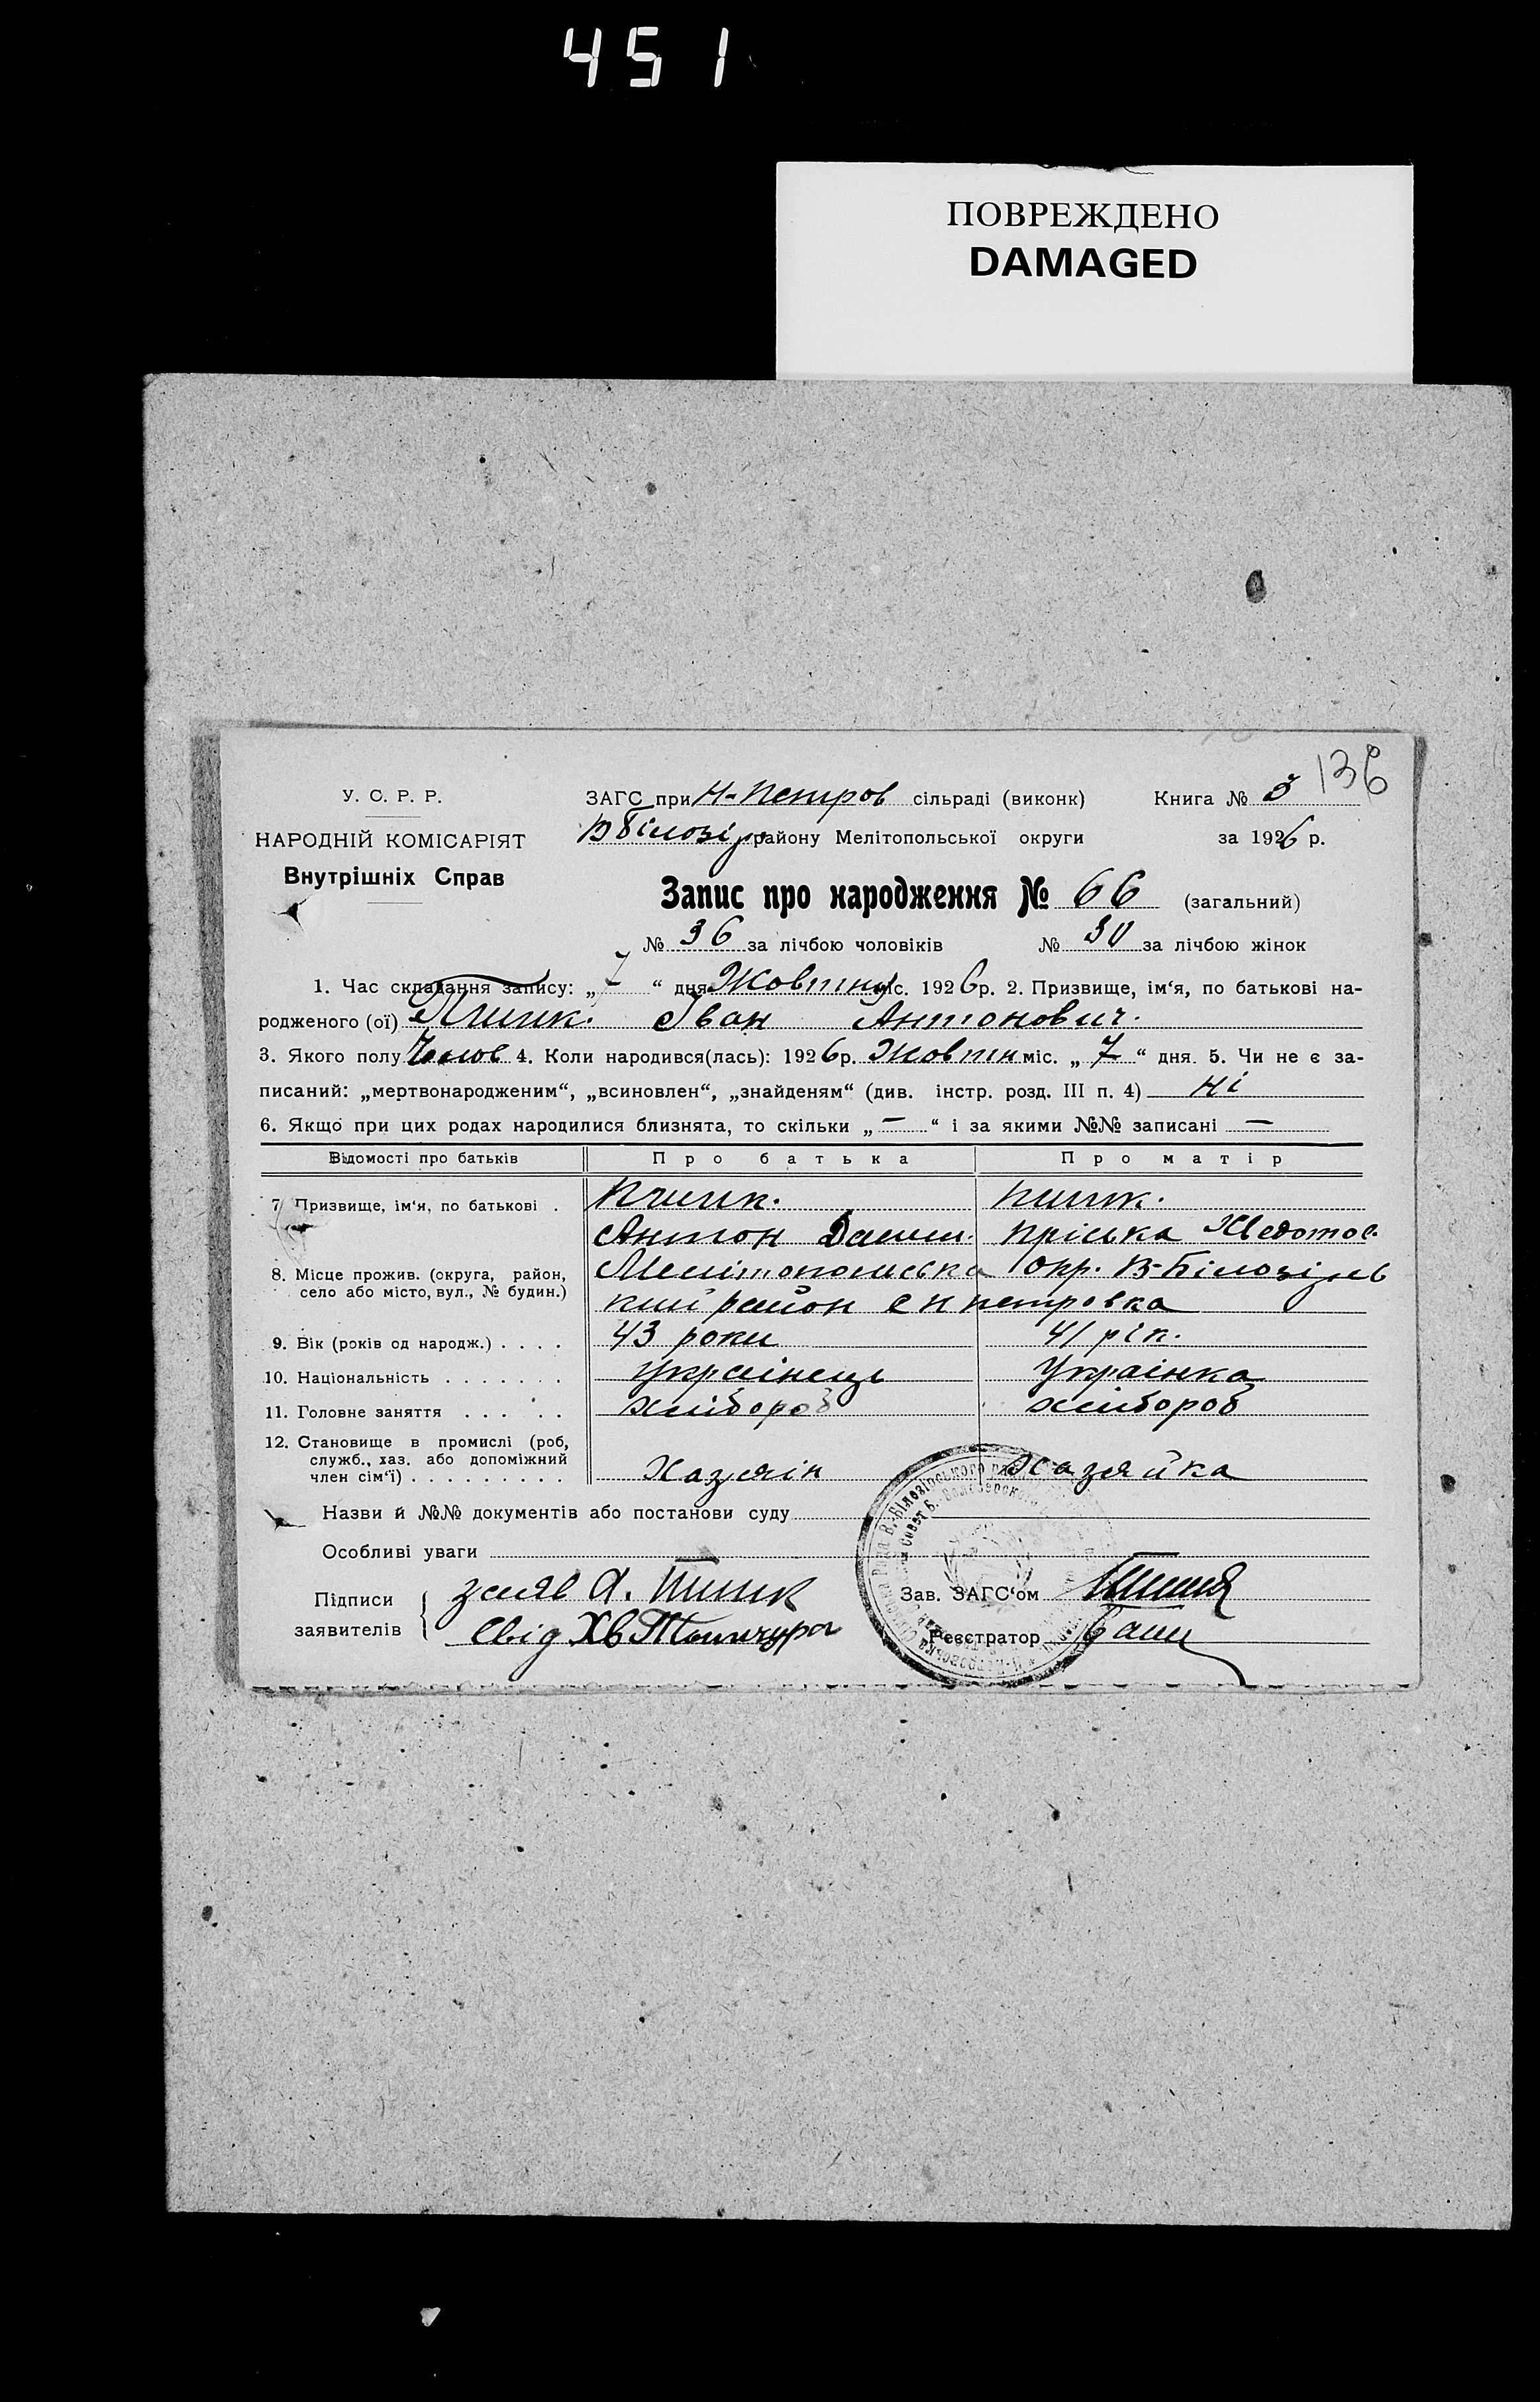 451
ПОВРЕЖДЕНО
DAMAGED
136
У. С. Р. Р.
НАРОДНІЙ КОМІСАРІЯТ
Внутрішніх Справ
ЗАГС при Н-Петров сільраді (виконк) Книга № 3
В Білозір району Мелітопольської округи за 1926 р.
Запис про народження № 66 (загальний)
№ 36 за лічбою чоловіків № 30 за лічбою жінок
1. Час складання запису: „7“ дня Жовтня міс. 1926 р. 2. Призвище, ім‘я, по батькові на-
родженого (ої) Іван Антонович.
3. Якого полу Чолов 4. Коли народився(лась): 1926 р. Жовтн міс. „7“ дня. 5. Чи не є за-
писаний: „мертвонародженим“, „всиновлен“, „знайденям“ (див. інстр. розд. III п. 4) Ні
6. Якщо при цих родах народилися близнята, то скільки „—“ і за якими №№ записані —
Відомості про батьків Про батька Про матір
7. Призвище, ім‘я, по батькові .
Антон Данил. Пріська Хведотов.
8. Місце прожив. (округа, район, село або місто, вул., № будин.) Мелітопольська Окр. В-Білозірсь
кий район с Н петровка
9. Вік (років од народж.) . . . . 43 роки 41 рік.
10. Національність . . . . . . . українець Українка
11. Головне заняття . . . . . хлібороб хлібороб
12. Становище в промислі (роб,
служб., хаз. або допоміжний
член сім‘ї) . . . . . . . . . Хазяїн Хазяйка
Назви й №№ документів або постанови суду
Особливі уваги
Підписи заявителів
заяв А.
Свід Хв
Зав. ЗАГС‘ом
Реєстратор